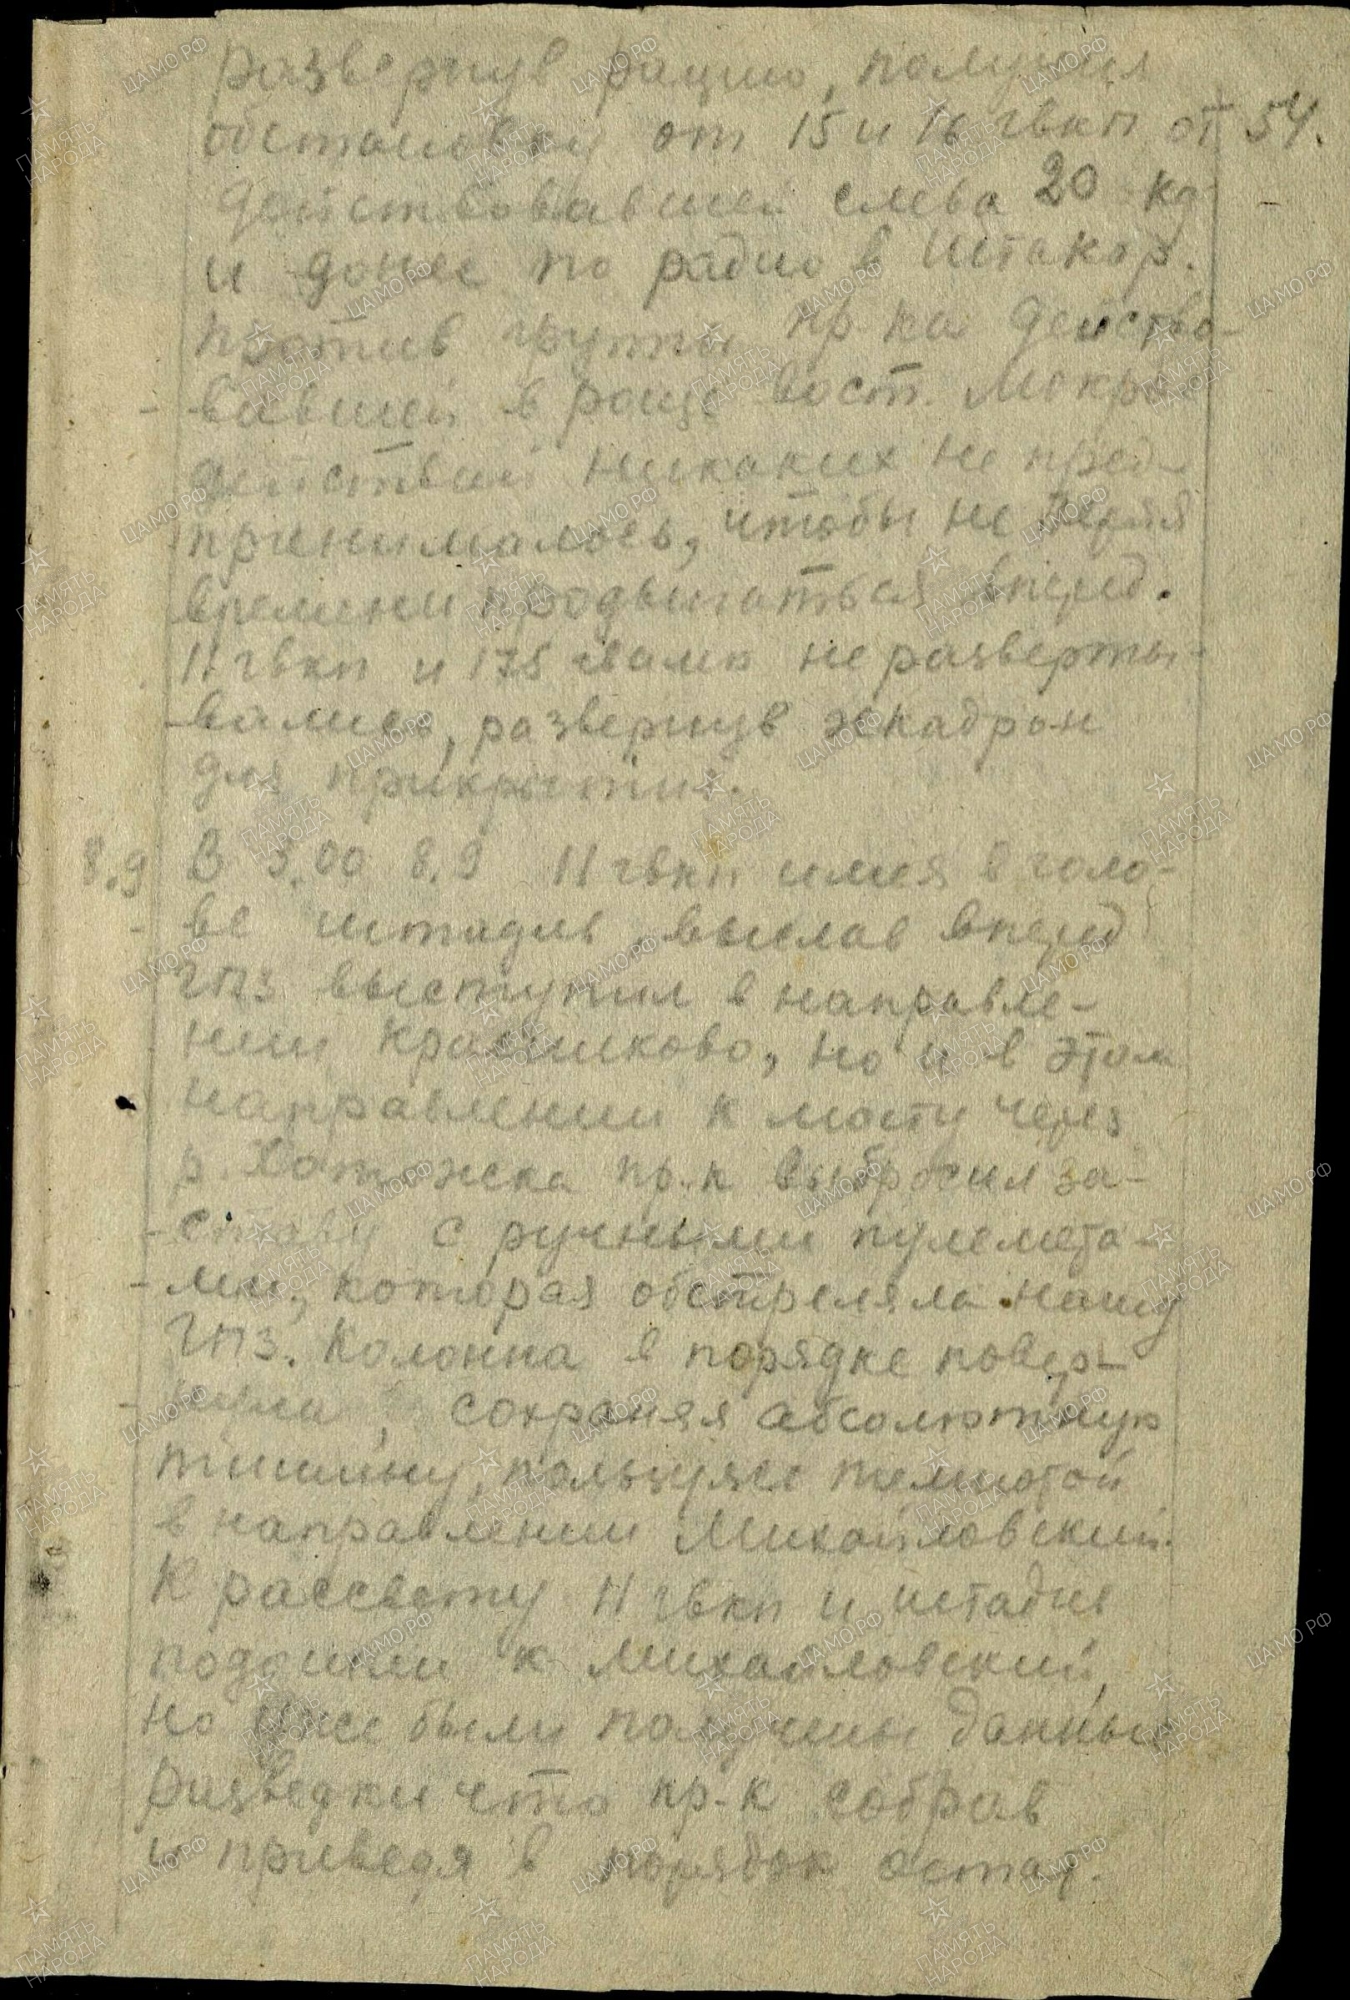 развернув рацию, получил
обстановку от 15 и 16 гвкп от 54.
действовавшей слева 20 кд
и донес по радио в штакор.
Против группы пр-ка действо-
вавшей в роще вост. Мокрое
действий никаких не пред-
принималось, чтобы не теряя
времени продвигаться вперед.
11 гвкп и 175 гвамп не разверты-
вались, развернув эскадрон
для прикрытия.
8.9 В 3.00 8.9 11 гвкп имея в голо-
ве штадив, выслав вперед
ГПЗ выступил в направле-
нии Красниково, но и в этом
направлении к мосту через
р. Хотожска пр-к выбросил за-
ставу с ручными пулемета-
ми, которая обстреляла нашу
ГПЗ. Колонна в порядке повер-
нула, сохраняя абсолютную
тишину, пользуясь темнотой
в направлении Михайловский.
К рассвету 11 гвкп и штадив
подошли к Михайловский,
но уже были получены данные
разведки что пр-к собрав
и приведя в порядок остат.